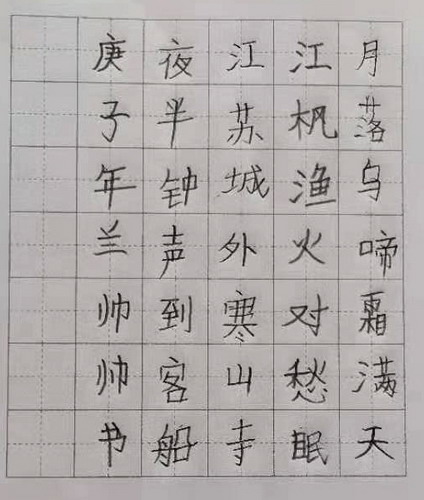 月落乌啼霜满天
江枫渔火对愁眠
江苏城外寒山寺
夜半钟声到客船
庚子年兰帅帅书